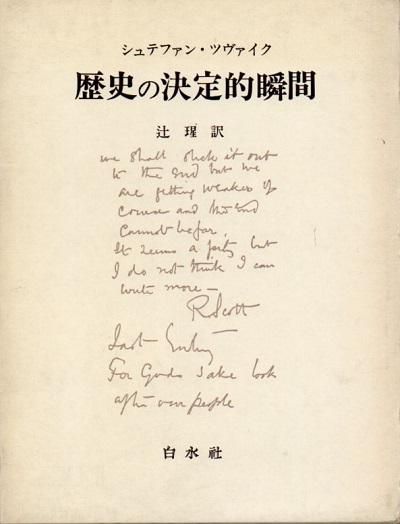 シュテファン・ツヴァイク
歴史の決定的瞬間
辻 瑆 訳
we shall stick it out
to the end but we
are getting weaker of
course and the end
cannot be far.
It seems a pity but
I do not think I can
write more —
R Scott
Last Entry
For Gods sake look
after our people
白水社